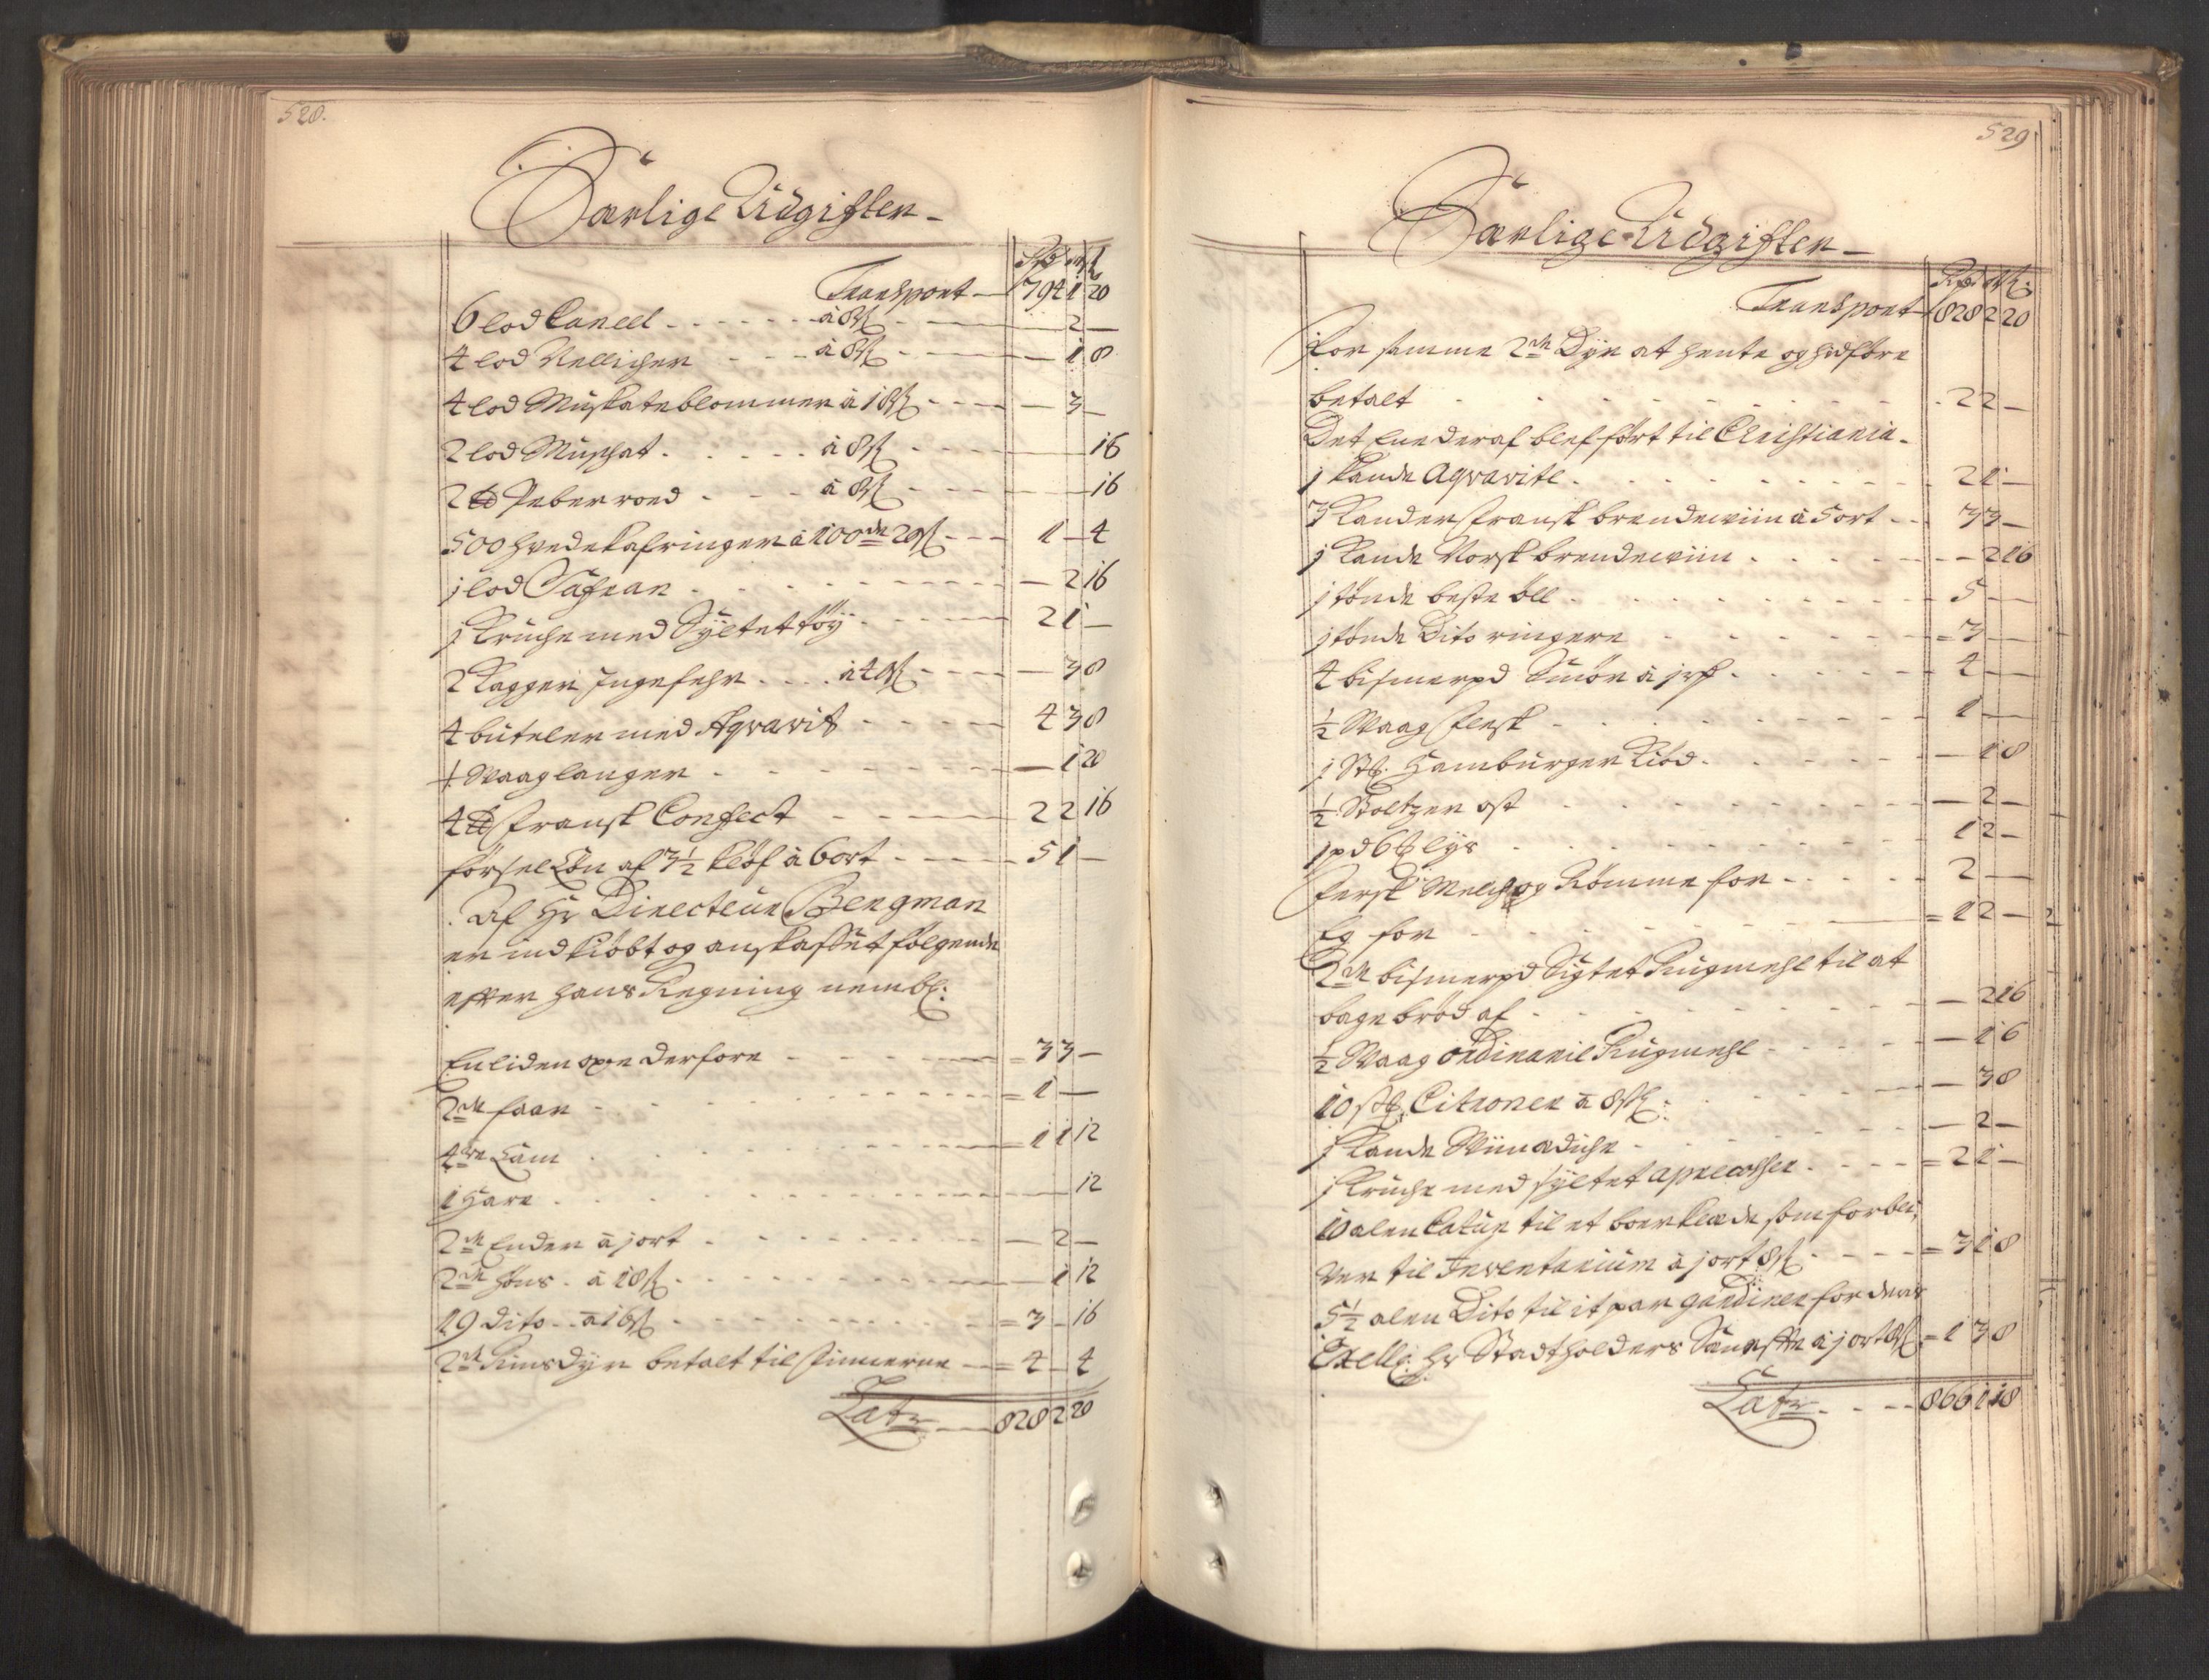 528.
Særlige Udgifter
Rdr ort ß
Transport — 794 1 20
6 lod Caneel - - - - - à 8 ß - — 2 —
4 lod Nelliger - - - à 8 ß - — 1 8
4 lod Muskateblommer à 18 ß - - - — 3 —
2 lod Muskat - - - - à 8 ß - - - — 16
2 ℔ Peberroed - - - à 8 ß - — 16
500 hvedekafringer à 100de 20 ß - - - 1 — 4
1 lod Safran - - - - — 2 16
1 Kruche med Syltet töy - - - - 2 1 —
2 Kagger Ingefehr - - - à 40 ß - - — 3 8
4 buteler med Aqvavit - - - - 4 3 8
Waag langer - - - - — 1 20
4 ℔ fransk Confect - - - - 2 2 16
förselLön af 3½ Klöf à 6 ort - - - - 5 1 —
Af Hr Directeur Bergman
er indkiöbt og anskaffet fölgende
efter hans Regning nembl:
En liden oxe derfore - - - - = 3 3 —
2de faar - - - - = 1 —
4re Lam - - - - = 1 1 12
1 Hare - - - - — 12
2de Ender à 1 ort - - - - — 2 —
2de höns à 18 ß - - - - — 1 12
19 dito - à 16 ß - - - - = 3 — 16
2de Rinsdyr betalt til finnerne — = 4 — 4
Latr — 828 2 20
529
Særlige Udgifter
Rdr ort ß
Transport 828 2 20
For samme 2de Dyr at hente og hidföre
betalt - - - - 2 2 —
Det Ene deraf blef fört til Christiania.
1 Kande Aqvavite - - - - 2 1 —
3 Kander fransk brendeviin à 5 ort - - 3 3 —
1 Kande Norsk brendeviin - - - - — 2 16
1 tönde beste öll - - - - 5 —
1 tönde Dito ringere - - - - = 3 —
4 bismerpd Smör à 1 rd - - - - 4 —
½ Waag flesk - - - - 1 —
1 Stk. Hamburger Kiöd - - - - — 1 8
½ Holtzer ost - - - - — 2 —
1 pd 6 ℔ lys - - - - 1 2 —
fersk Melch og Römme for - - - - 2 —
Eg for - - - - = 1 2 —
2de bismerpd Sigtet Rugmehl til at
bage bröd af - - - - — 2 16
½ Waag ordinarie Rugmehl - - - - — 1 6
10 stk. Citroner à 8 ß - - - - — 3 8
1 Kande Viinædiche - - - - — 2 —
1 Kruche med syltet aprecosser - - - - = 2 1 —
10 alen Catun til et boerklæde som forbli,
ver til Inventarium à 1 ort 8 ß - - - - = 3 1 8
5½ alen Dito til it par gardiner for deris
Excell: Hr Stadtholders Sænge à 1 ort 8 ß = 1 3 8
Latr - - - 866 1 18